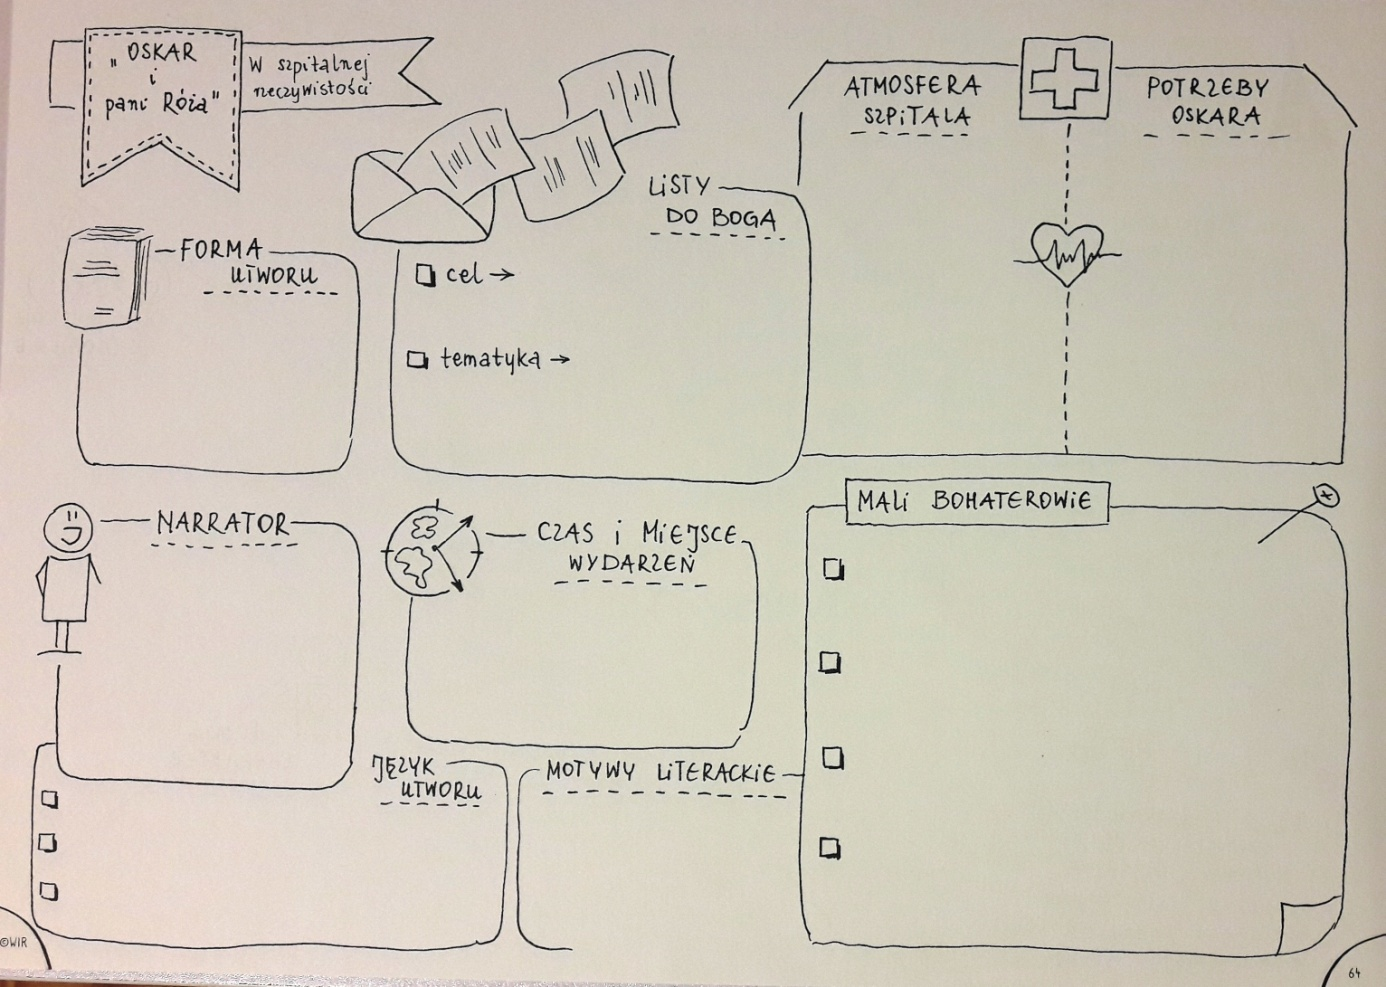 „OSKAR
i
pani Róża"
W szpitalnej
rzeczywistości
FORMA
UTWORU
LiSTY
DO BOGA
cel →
tematyka →
ATMOSFERA
SZPiTALA
POTRZEBY
OSKARA
NARRATOR
CZAS i MiEJSCE
WYDARZEŃ
MALi BOHATEROWiE
JĘZYK
UTWORU
MOTYWY LiTERACKiE
©WIR
64